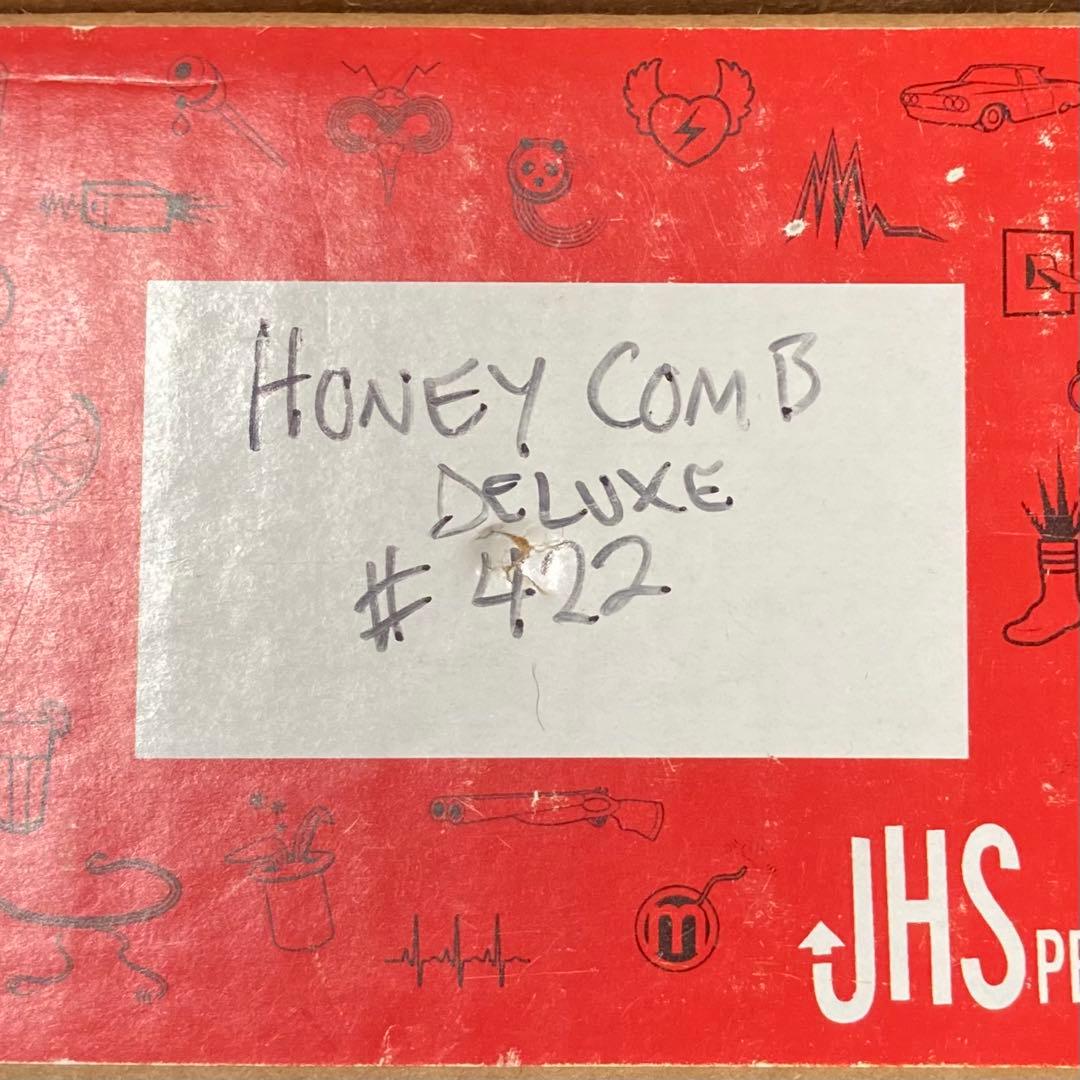 HONEY COMB
DELUXE
# 422
m
JHS PE